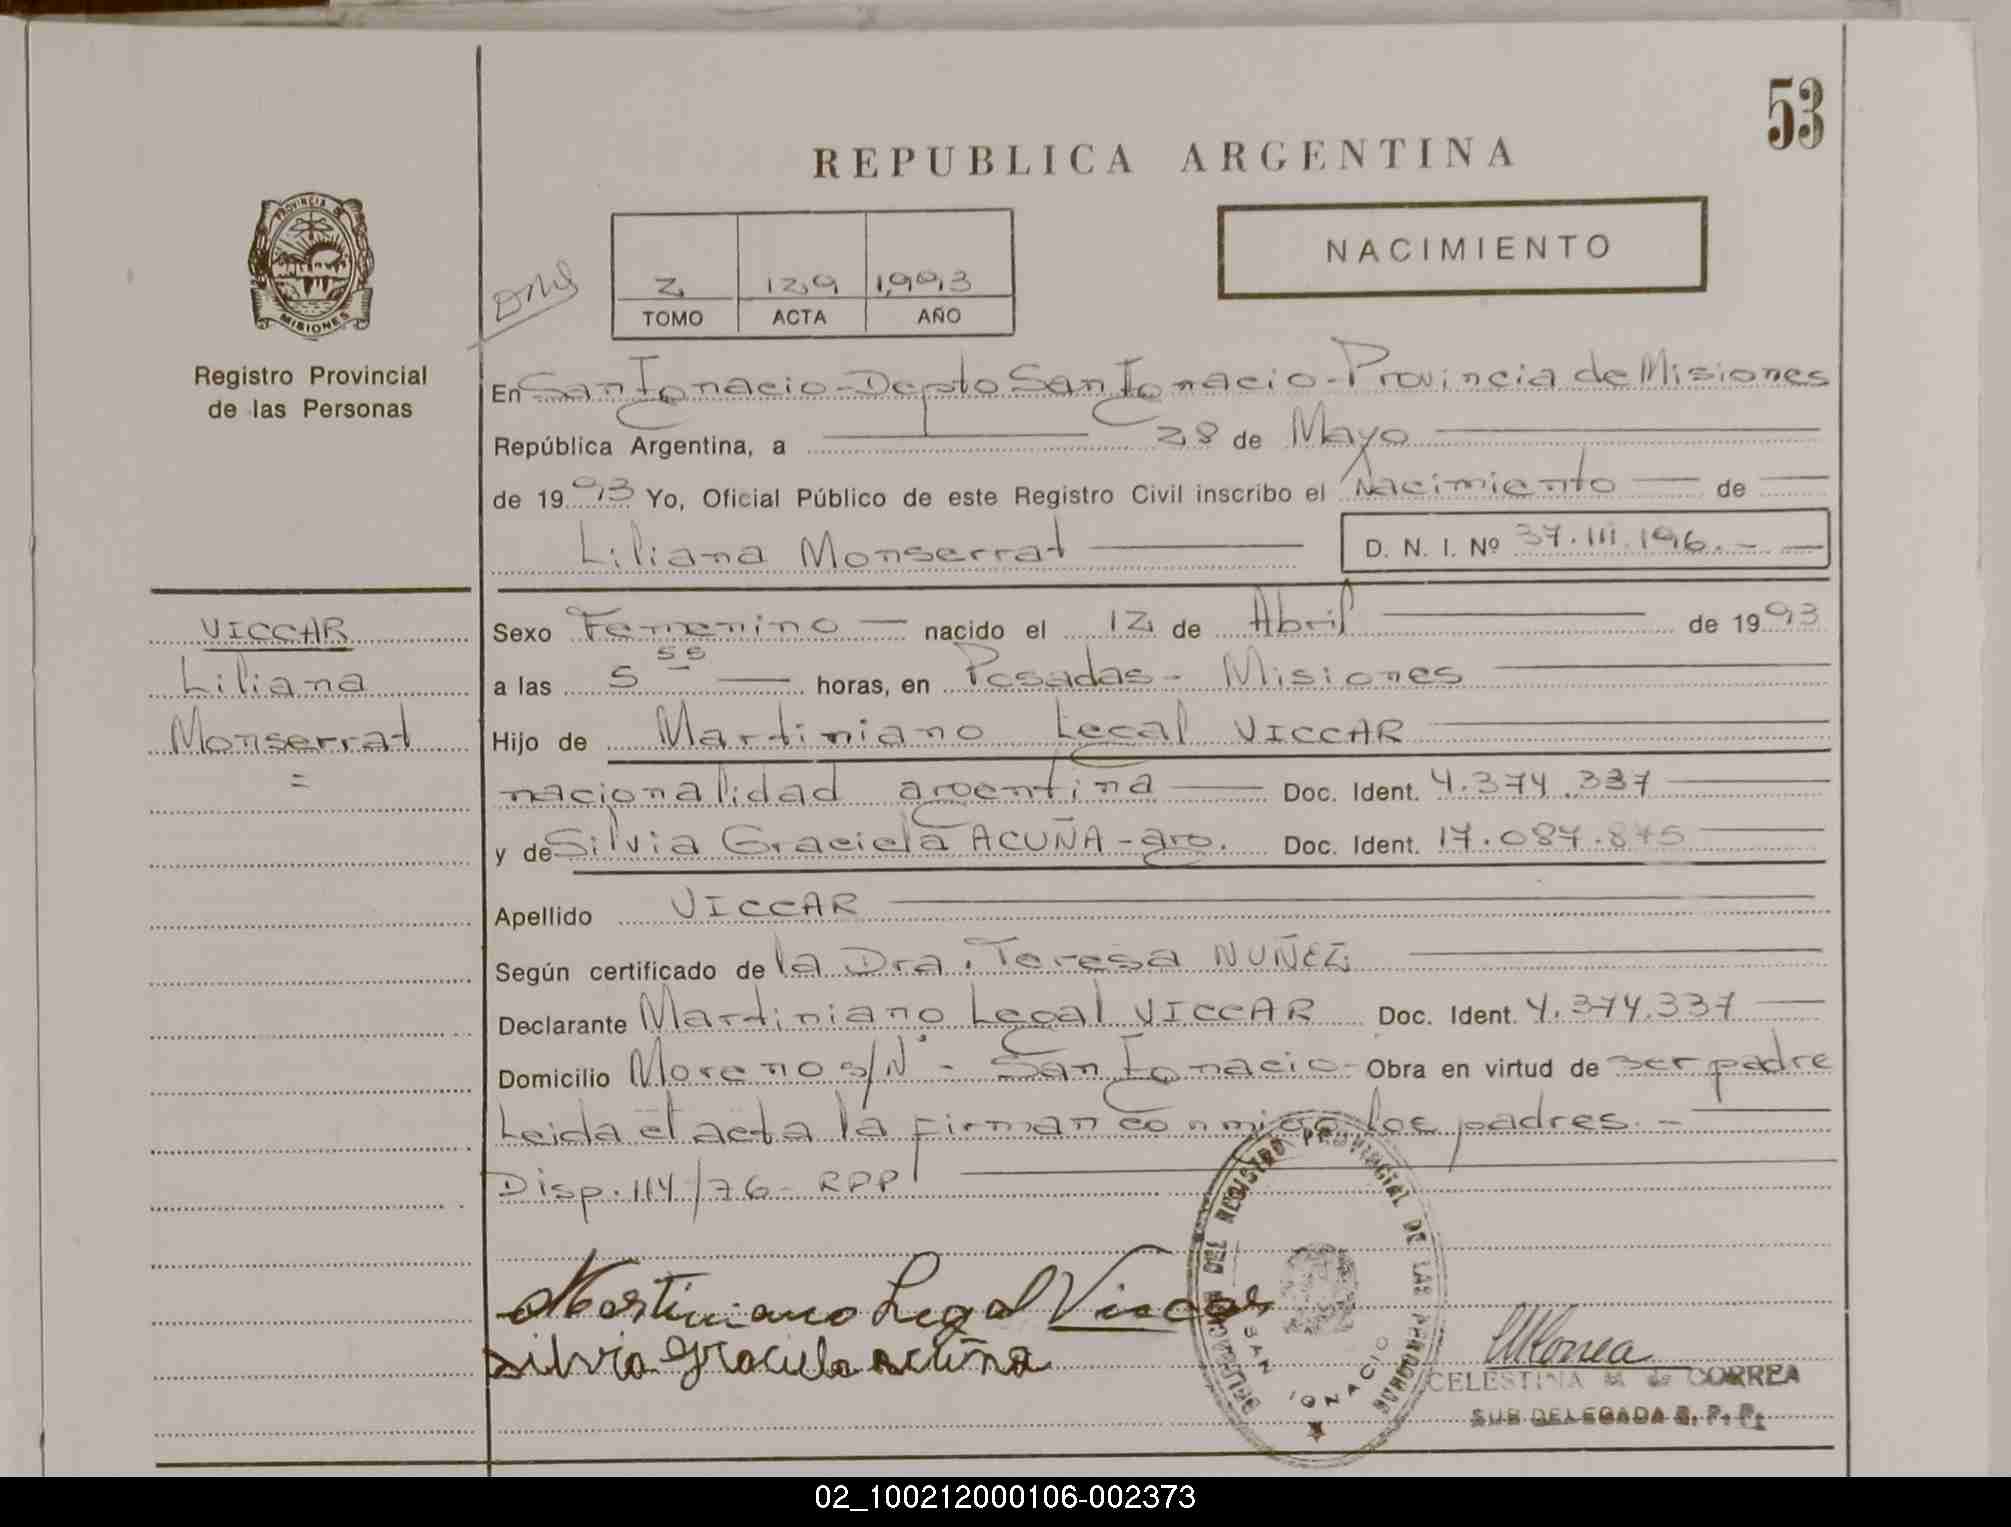 53
REPUBLICA ARGENTINA
NACIMIENTO
PROVINCIA DE
MISIONES
Registro Provincial
de las Personas
2 129 1993
TOMO ACTA AÑO
En San Ignacio - Depto San Ignacio - Provincia de Misiones
República Argentina, a 28 de Mayo
de 19 93 Yo, Oficial Público de este Registro Civil inscribo el Nacimiento de
Liliana Monserrat D. N. I. Nº 37.111.196.-
VICCAR
Liliana
Monserrat
=
Sexo Femenino nacido el 12 de Abril de 19 93
a las 5 55 horas, en Posadas - Misiones
Hijo de Martiniano Legal VICCAR
nacionalidad argentina Doc. Ident. 4.374.337
y de Silvia Graciela ACUÑA - arg. Doc. Ident. 17.087.875
Apellido VICCAR
Según certificado de la Dra. Teresa NUÑEZ
Declarante Martiniano Legal VICCAR Doc. Ident. 4.374.337
Domicilio Moreno s/Nº - San Ignacio - Obra en virtud de ser padre
Leida el acta la firman conmigo los padres. -
Disp. 114/76 - RPP
Martiniano Legal Viccar
Silvia Graciela Acuña
DELEGACION DEL REGISTRO PROVINCIAL DE LAS PERSONAS
SAN IGNACIO
CELESTINA M de CORREA
SUB DELEGADA R. P. P.
02_100212000106-002373